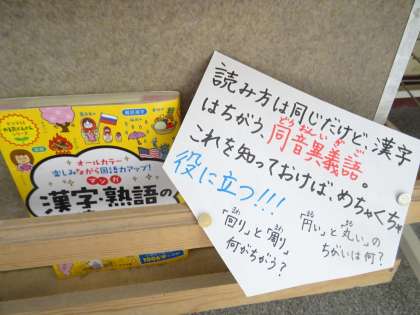 読み方は同じだけど、漢字
はちがう、同音異義語。
どうおんいぎご
これを知っておけば、めちゃくちゃ
役に立つ!!!
「回り」と「周り」
まわ
まわ
何がちがう?
「円い」と「丸い」の
まる
まる
ちがいは何?
オールカラー
楽しみながら国語力アップ!
マンガ
漢字・熟語の